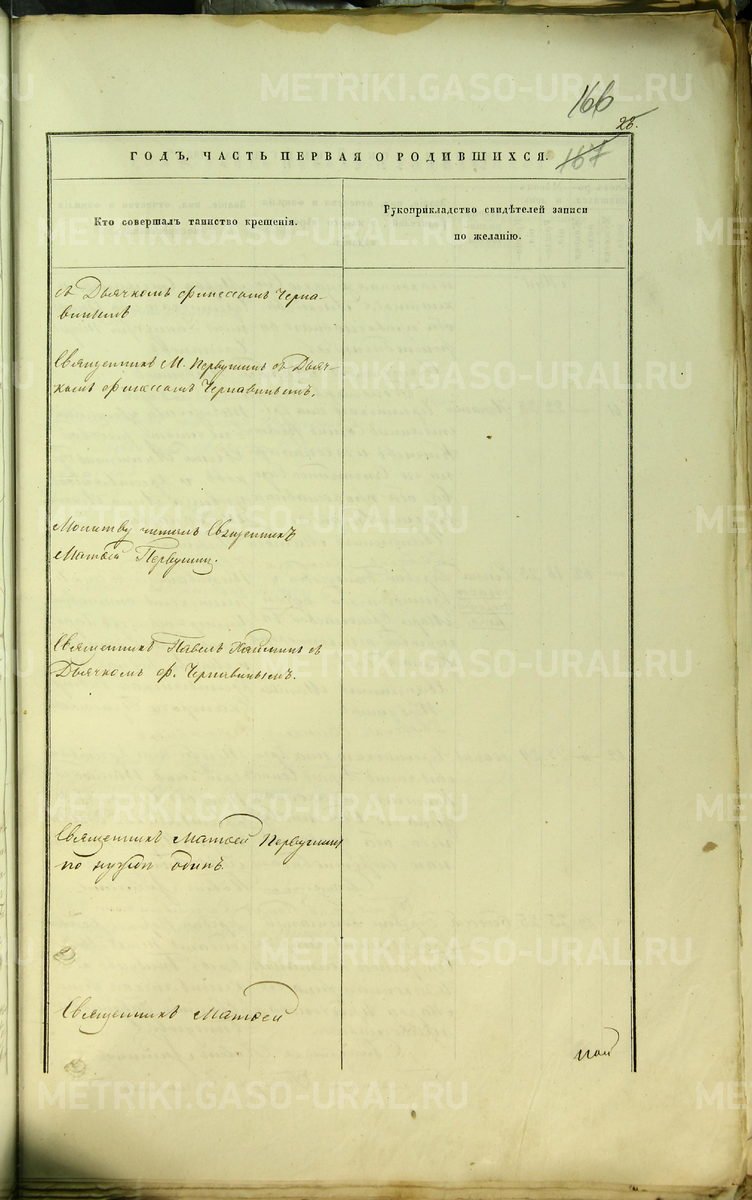 166
28.
167
ГОДЪ, ЧАСТЬ ПЕРВАЯ О РОДИВШИХСЯ.
Кто совершалъ таинство крещенія.
Рукоприкладство свидѣтелей записи
по желанію.
съ Дьячкомъ Фплессомъ Черна-
винымъ
Священникъ М. Первушинъ съ Дьяч-
комъ Чернавинымъ.
Молитву читалъ Священникъ
Матѳей Первушин.
Священникъ Павелъ съ
Дьячкомъ Ф. Чернавинымъ.
Священникъ Матѳей Первушинъ
по нуждѣ одинъ.
Священникъ Матѳей
METRIKI.GASO-URAL.RU